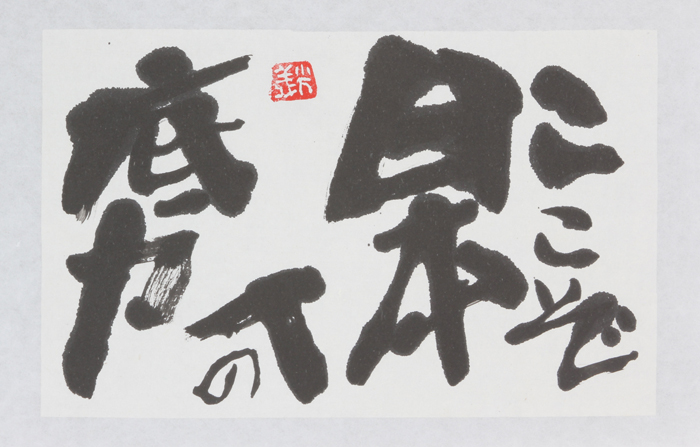 ここぞ
日本
人の
底力